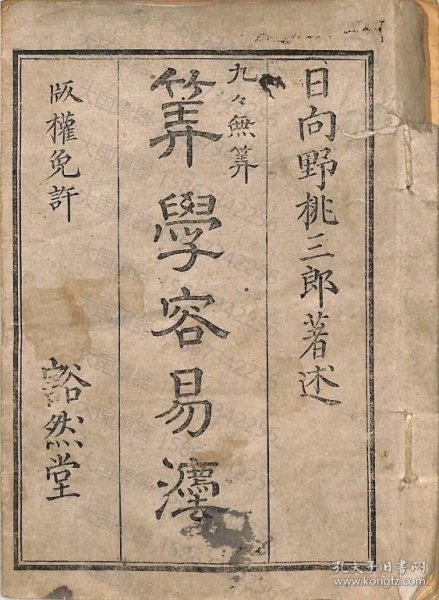 日向野桃三郎著述
九々無筭
筭學容易灋
版權免許
豁然堂
孔夫子旧书网
www.kongfz.com